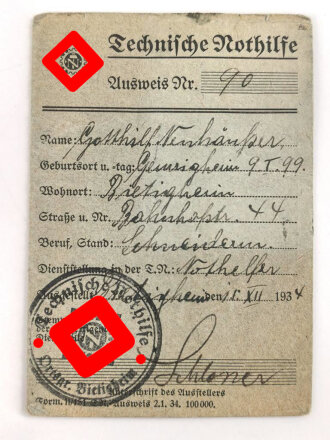 Technische Nothilfe
Ausweis Nr. 90
Name: Gotthilf Neuhäußer
Geburtsort u. -tag: Gemrigheim 9. I. 99.
Wohnort: Bietigheim
Straße u. Nr. Bahnhofstr. 44.
Beruf, Stand: Schneiderm.
Dienststellung in der T.N.: Nothelfer
Bietigheim den 1. XII 1934
Technische Nothilfe
Ortsgr. Bietigheim
Unterschrift des Ausstellers
Ausweis 2.1. 34. 100 000.